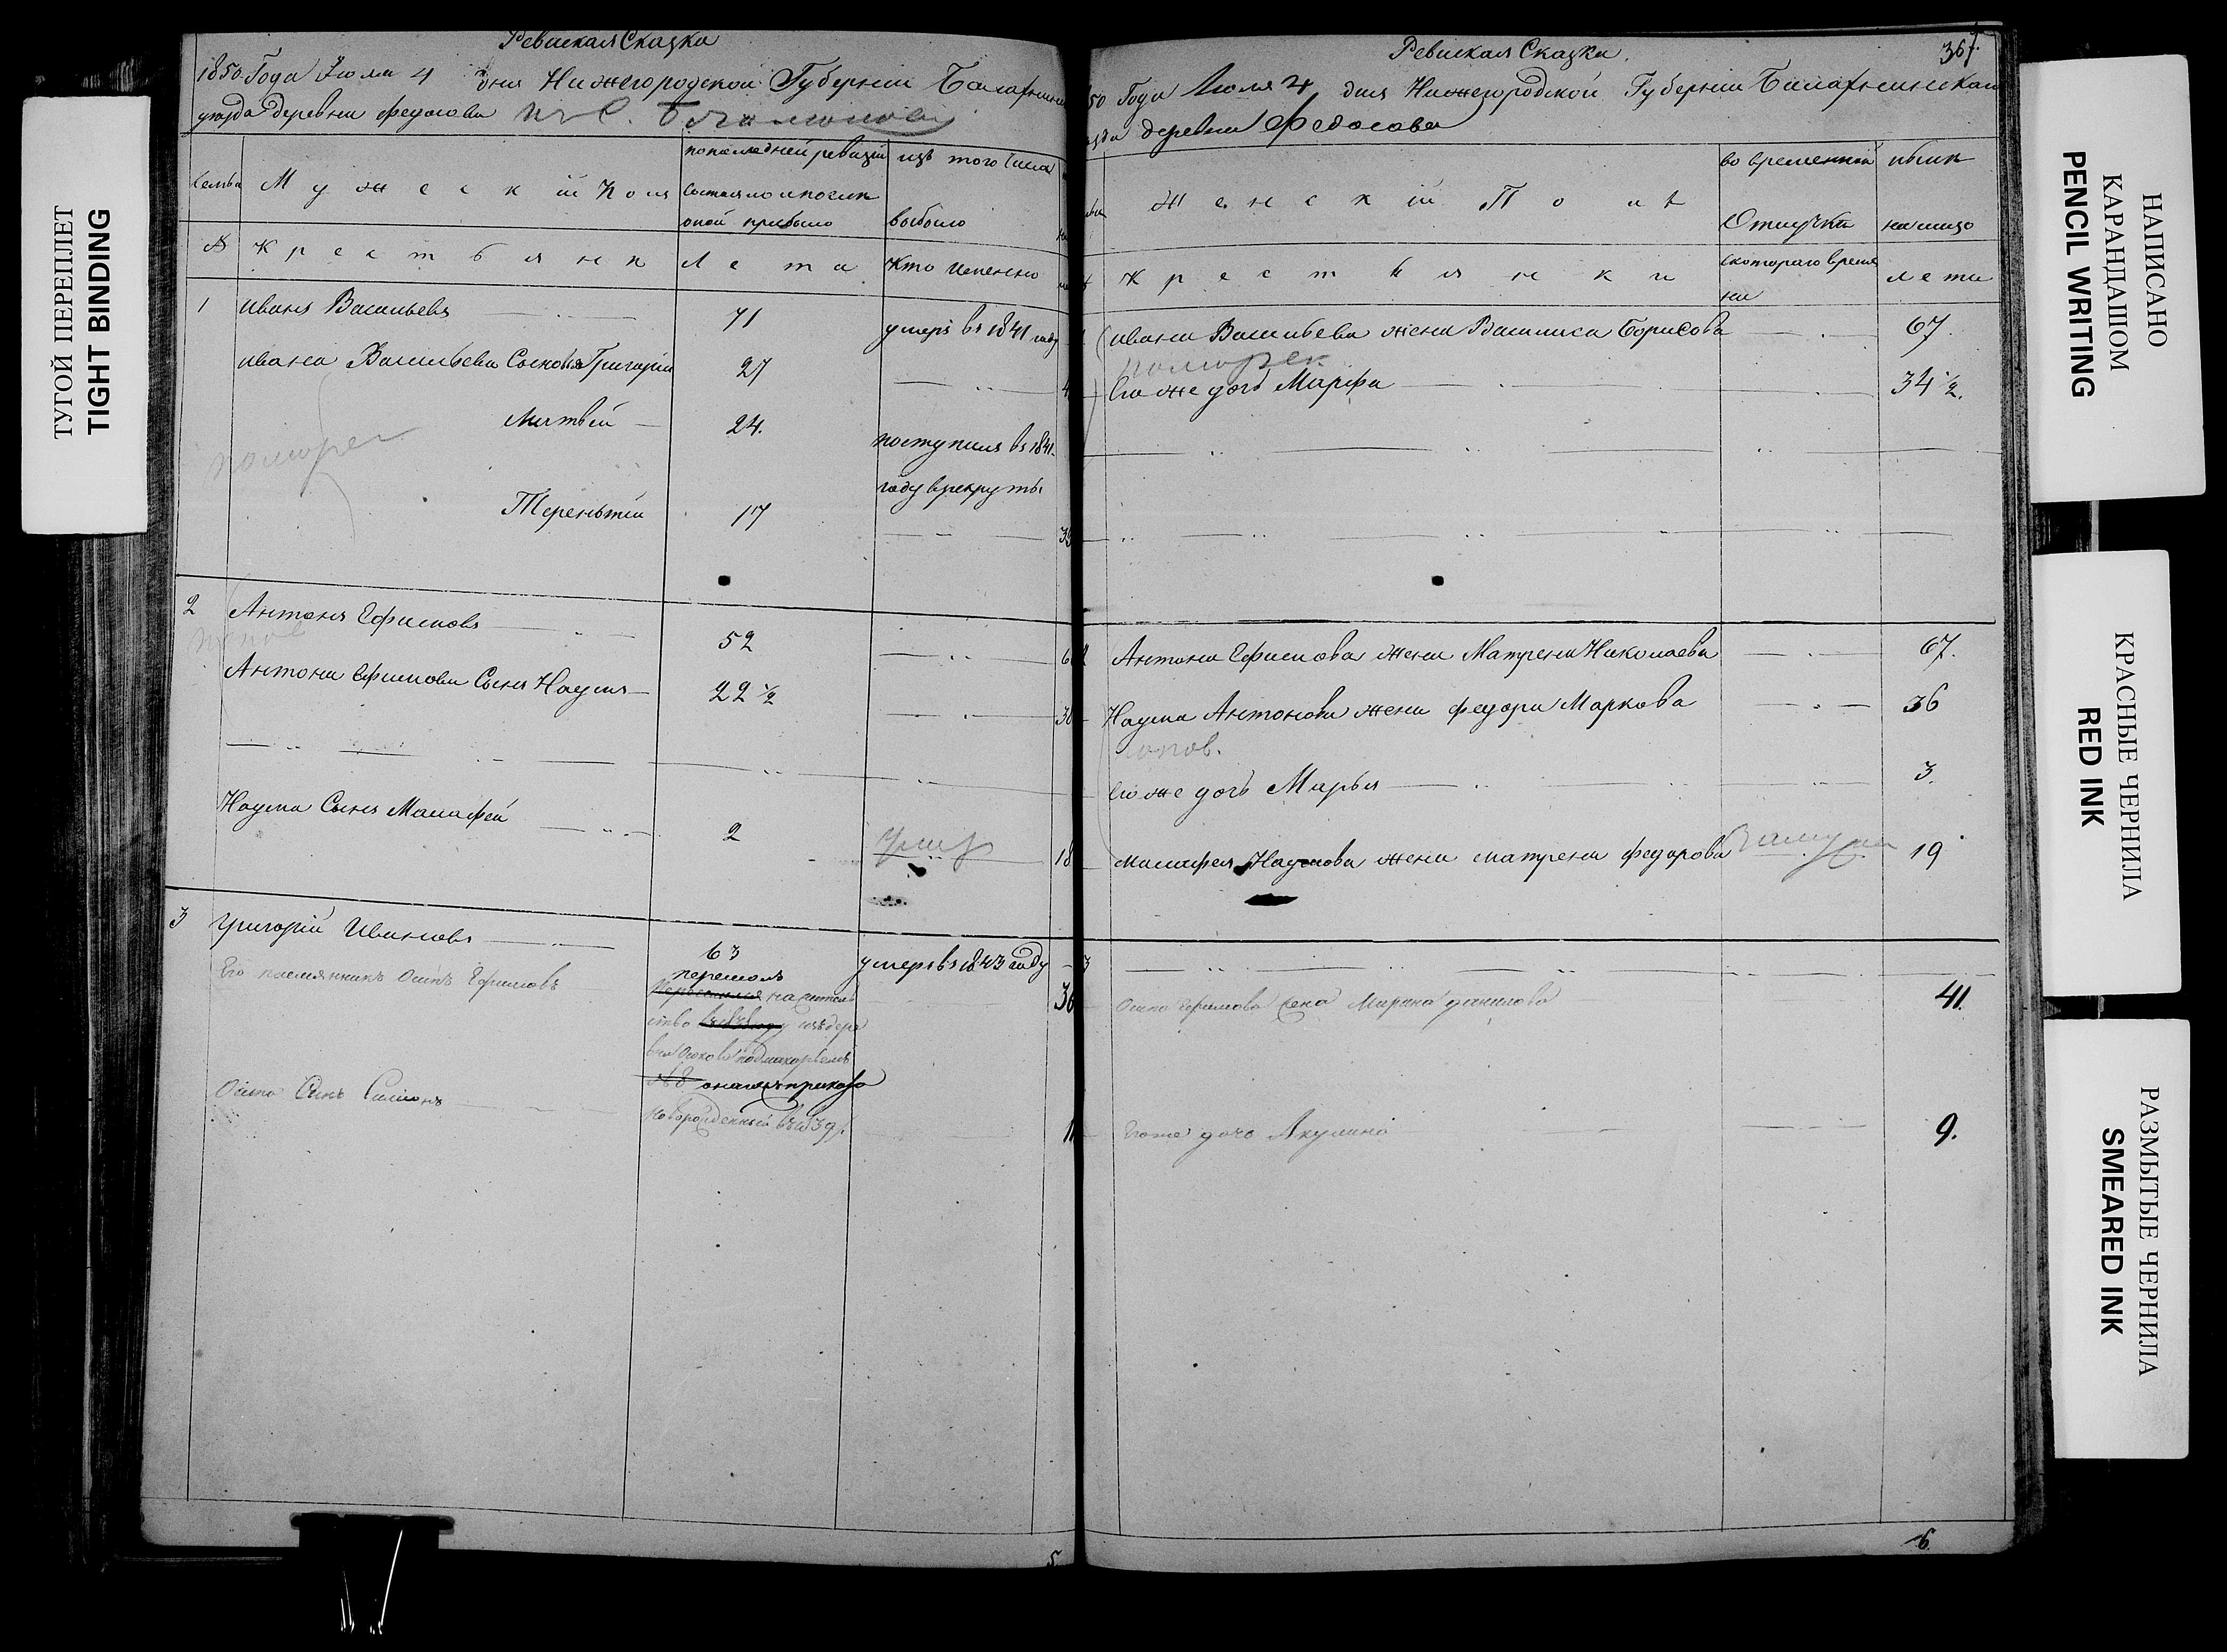 ТУГОЙ ПЕРЕПЛЕТ
TIGHT BINDING
Ревиская Сказка
1850 Года Июля 4 дня Нижегородской Губернии Балахнин
уезда деревни федосова
Семьи
Мужеский Пол
по последней ревизии состояло и после оной прибыло
изъ того числа выбыло
№
Крестьяне
Лета
Кто именно
1 Иванъ Васильевъ 71 умеръ въ 1841 году
Ивана Васильева Сыновья Григорий 27
Матвей 24. поступилъ въ 1841.
году в рекруты
Терентий 17 39
2 Антонъ Ефимовъ 52
Антона Ефимова Сынъ Наумъ 22 ½
Наума Сынъ Малафей 2 умер 18
3 Григорий Ивановъ 63 умеръ въ 1843 году
Его племянникъ Осипъ Ефимовъ
перешолъ
на житель
ство изъ дере
вни
Осипа Сынъ Симонъ
новорожденный
5
Ревиская Сказка.
367
50 Года Июля 4 дня Нижегородской Губернии Балахнинскаго
деревни Федосова
Женский Полъ
во временной Отлучке
ныне налицо
Крестьянки
с котораго времени
лета
Ивана Васильева жена Василиса Борисова 67.
поморск
Его же дочь Марфа 34 ½.
Антона Ефимова жена Матрена Николаева 67.
Наума Антонова жена федора Маркова 36
Его же дочь Марья 3.
малафея Наумова жена матрена федорова замужем 19
3
Осипа Ефимова жена Марина данилова 41.
Его же дочь Акулина 9.
6
НАПИСАНО
КАРАНДАШОМ
PENCIL WRITING
КРАСНЫЕ ЧЕРНИЛА
RED INK
РАЗМЫТЫЕ ЧЕРНИЛА
SMEARED INK